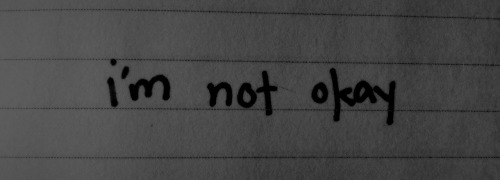 i'm not okay